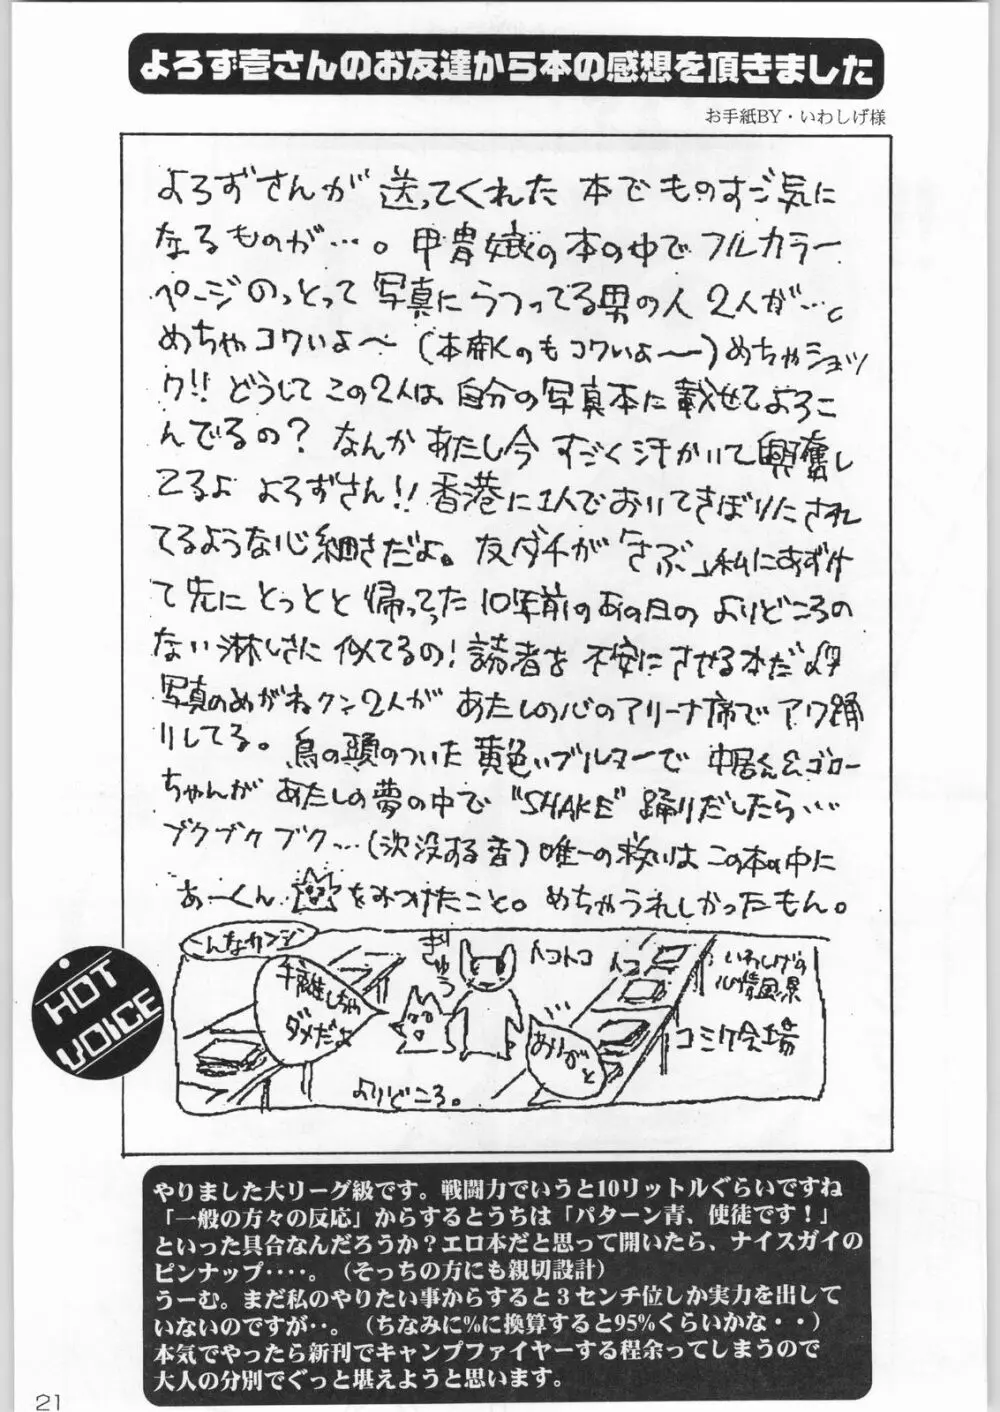 よろず壱さんのお友達から本の感想を頂きました
お手紙BY・いわしげ様
よろずさんが送ってくれた本でものすご気に
なるものが…。甲冑娘の本の中でフルカラー
ページのっとって写真にうつってる男の人2人が…。
めちゃコワいよ〜(本開くのもコワいよ〜)めちゃショッ
ク!!どうしてこの2人は自分の写真本に載せてよろこ
んでるの?なんかあたし今すごく汗かいて興奮し
てるよよろずさん!!香港に1人でおいてきぼりにされ
てるような心細さだよ。友ダチが「さぶ」私にあずけ
て先にとっとと帰ってった10年前のあの日のよりどころの
ない淋しさに似てるの!読者を不安にさせる本だ
写真のめがねクン2人があたしの心のアリーナ席でアワ踊
りしてる。鳥の頭のついた黄色いブルマーで中居くん&ゴロー
ちゃんがあたしの夢の中で"SHAKE"踊りだしたら…
ブクブクブク…(沈没する音)唯一の救いはこの本の中に
あーくんをみつけたこと。めちゃうれしかったもん。
こんなカンジ
ぎゅう
トコトコ
トコ
いわしげの
心情風景
手離しちゃ
ダメだよ
ありがと
コミケ会場
よりどころ。
HOT
VOICE
やりました大リーグ級です。戦闘力でいうと10リットルぐらいですね
「一般の方々の反応」からするとうちは「パターン青、使徒です！」
といった具合なんだろうか？エロ本だと思って開いたら、ナイスガイの
ピンナップ‥‥。（そっちの方にも親切設計）
うーむ。まだ私のやりたい事からすると３センチ位しか実力を出して
いないのですが‥。（ちなみに%に換算すると95%くらいかな・・）
本気でやったら新刊でキャンプファイヤーする程余ってしまうので
大人の分別でぐっと堪えようと思います。
21